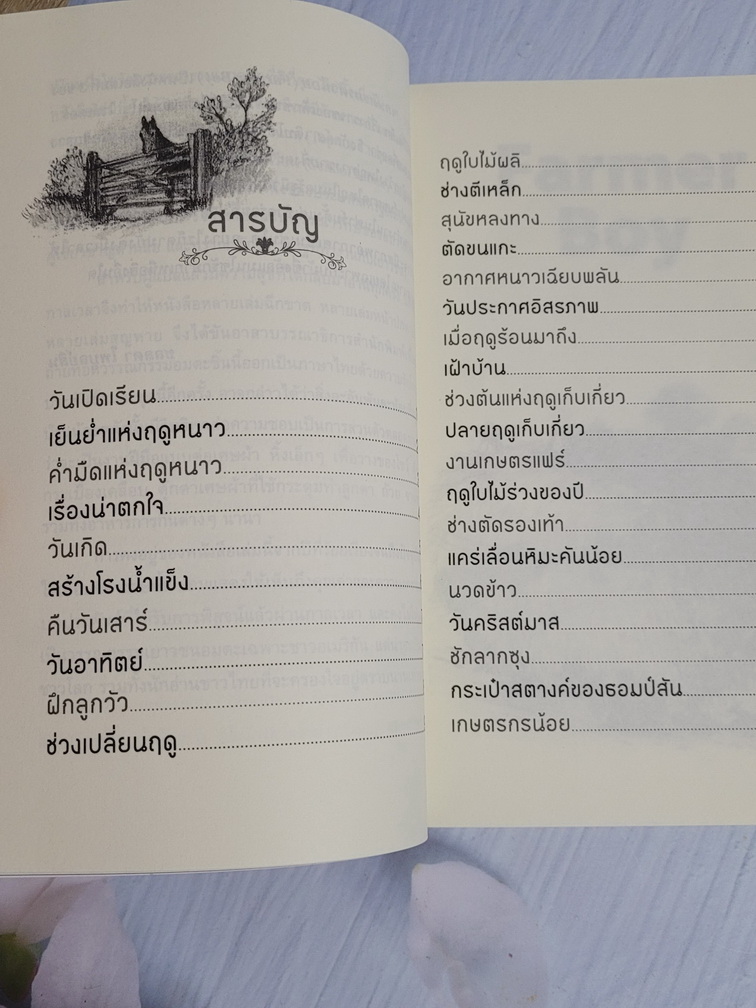 สารบัญ
วันเปิดเรียน
เย็นย่ำแห่งฤดูหนาว
ค่ำมืดแห่งฤดูหนาว
เรื่องน่าตกใจ
วันเกิด
สร้างโรงน้ำแข็ง
คืนวันเสาร์
วันอาทิตย์
ฝึกลูกวัว
ช่วงเปลี่ยนฤดู
ฤดูใบไม้ผลิ
ช่างตีเหล็ก
สุนัขหลงทาง
ตัดขนแกะ
อากาศหนาวเฉียบพลัน
วันประกาศอิสรภาพ
เมื่อฤดูร้อนมาถึง
เฝ้าบ้าน
ช่วงต้นแห่งฤดูเก็บเกี่ยว
ปลายฤดูเก็บเกี่ยว
งานเกษตรแฟร์
ฤดูใบไม้ร่วงของปี
ช่างตัดรองเท้า
แคร่เลื่อนหิมะคันน้อย
นวดข้าว
วันคริสต์มาส
ชักลากซุง
กระเป๋าสตางค์ของธอมป์สัน
เกษตรกรน้อย